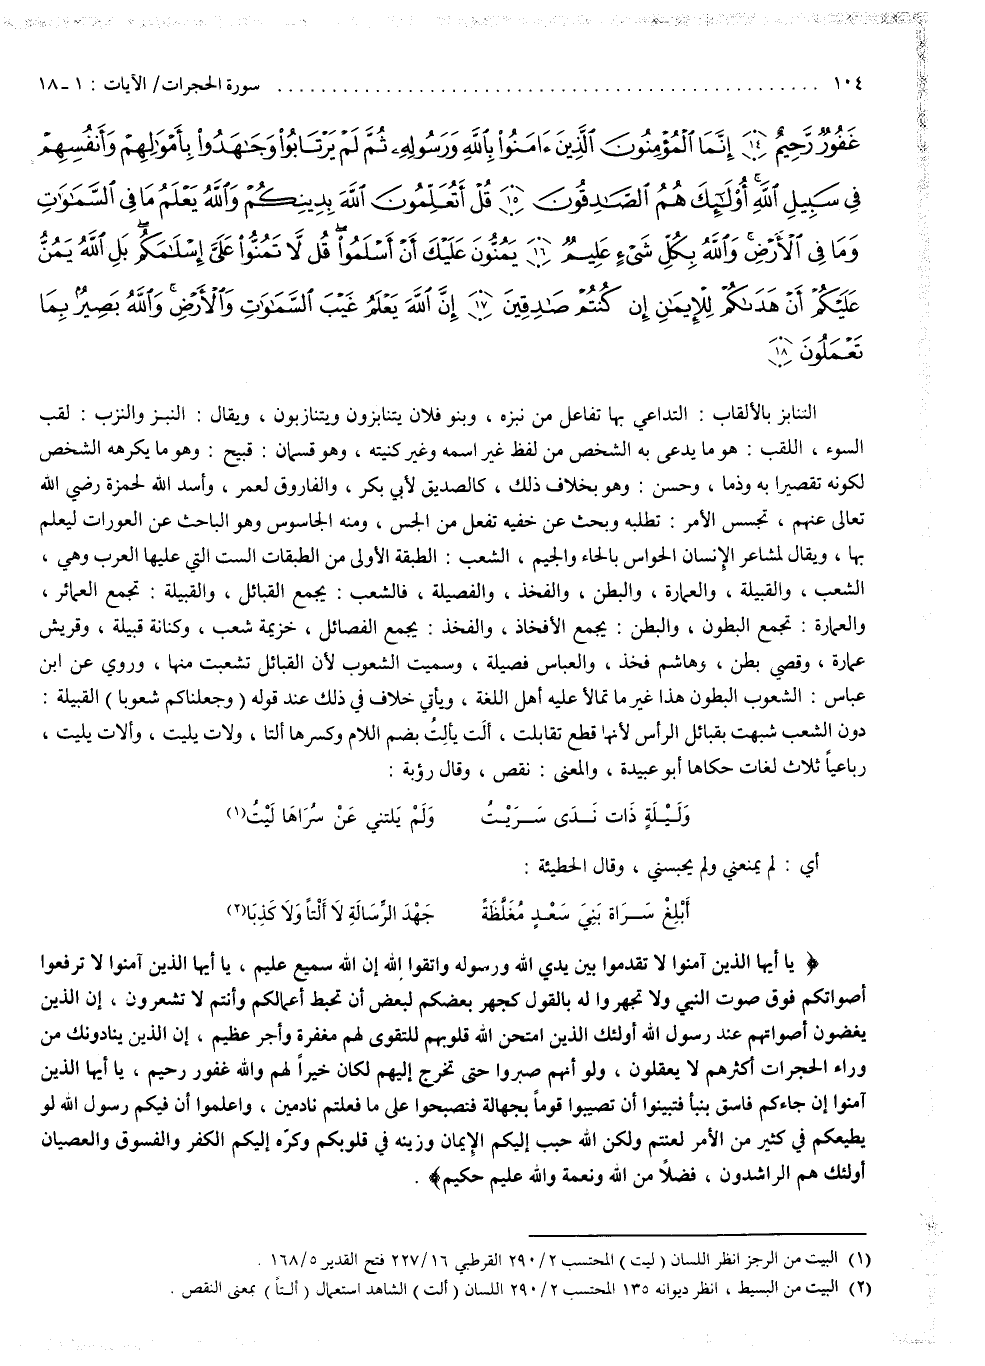 ١٠٤ ........................................ سورة الحجرات / الآيات : ١ - ١٨
غَفُورٌ رَّحِيمٌ ١٤ إِنَّمَا الْمُؤْمِنُونَ الَّذِينَ ءَامَنُوا بِاللَّهِ وَرَسُولِهِ ثُمَّ لَمْ يَرْتَابُوا وَجَاهَدُوا بِأَمْوَالِهِمْ وَأَنفُسِهِمْ
فِي سَبِيلِ اللَّهِ أُوْلَئِكَ هُمُ الصَّادِقُونَ ١٥ قُلْ أَتُعَلِّمُونَ اللَّهَ بِدِينِكُمْ وَاللَّهُ يَعْلَمُ مَا فِي السَّمَاوَاتِ
وَمَا فِي الْأَرْضِ وَاللَّهُ بِكُلِّ شَيْءٍ عَلِيمٌ ١٦ يَمُنُّونَ عَلَيْكَ أَنْ أَسْلَمُوا قُل لَّا تَمُنُّوا عَلَيَّ إِسْلَامَكُم بَلِ اللَّهُ يَمُنُّ
عَلَيْكُمْ أَنْ هَدَاكُمْ لِلْإِيمَانِ إِن كُنتُمْ صَادِقِينَ ١٧ إِنَّ اللَّهَ يَعْلَمُ غَيْبَ السَّمَاوَاتِ وَالْأَرْضِ وَاللَّهُ بَصِيرٌ بِمَا
تَعْمَلُونَ ١٨
التنابز بالألقاب : التداعي بها تفاعل من نبزه ، وبنو فلان يتنابزون ويتنازبون ، ويقال : النبز والنزب : لقب
السوء ، اللقب : هو ما يدعى به الشخص من لفظ غير اسمه وغير كنيته ، وهو قسمان : قبيح : وهو ما يكرهه الشخص
لكونه تقصيرا به وذما ، وحسن : وهو بخلاف ذلك ، كالصديق لأبي بكر ، والفاروق لعمر ، وأسد الله لحمزة رضي الله
تعالى عنهم ، تجسس الأمر : تطلبه وبحث عن خفيه تفعل من الجس ، ومنه الجاسوس وهو الباحث عن العورات ليعلم
بها ، ويقال لمشاعر الإنسان الحواس بالحاء والجيم ، الشعب : الطبقة الأولى من الطبقات الست التي عليها العرب وهي ،
الشعب ، والقبيلة ، والعمارة ، والبطن ، والفخذ ، والفصيلة ، فالشعب : يجمع القبائل ، والقبيلة : تجمع العمائر ،
والعمارة : تجمع البطون ، والبطن : يجمع الأفخاذ ، والفخذ : يجمع الفصائل ، خزيمة شعب ، وكنانة قبيلة ، وقريش
عمارة ، وقصي بطن ، وهاشم فخذ ، والعباس فصيلة ، وسميت الشعوب لأن القبائل تشعبت منها ، وروي عن ابن
عباس : الشعوب البطون هذا غير ما تمالأ عليه أهل اللغة ، ويأتي خلاف في ذلك عند قوله ( وجعلناكم شعوبا ) القبيلة :
دون الشعب شبهت بقبائل الرأس لأنها قطع تقابلت ، ألَت يألِتُ بضم اللام وكسرها ألتا ، ولات يليت ، وألات يليت ،
رباعياً ثلاث لغات حكاها أبو عبيدة ، والمعنى : نقص ، وقال رؤبة :
وَلَـيْـلَةٍ ذَات نَـدَى سَـرَيْـتُ وَلَمْ يَلتني عَنْ سُرَاهَا لَيْتُ(١)
أي : لم يمنعني ولم يحبسني ، وقال الحطيئة :
أَبْلِغْ سَـرَاة بَنِيَ سَعْـدٍ مُغَلْظَةً جَهْدَ الرِّسَالَةِ لَا أَلْتاً وَلَا كَذِبَا(٢)
﴿ يا أيها الذين آمنوا لا تقدموا بين يدي الله ورسوله واتقوا الله إن الله سميع عليم ، يا أيها الذين آمنوا لا ترفعوا
أصواتكم فوق صوت النبي ولا تجهروا له بالقول كجهر بعضكم لبعض أن تحبط أعمالكم وأنتم لا تشعرون ، إن الذين
يغضون أصواتهم عند رسول الله أولئك الذين امتحن الله قلوبهم للتقوى لهم مغفرة وأجر عظيم ، إن الذين ينادونك من
وراء الحجرات أكثرهم لا يعقلون ، ولو أنهم صبروا حتى تخرج إليهم لكان خيراً لهم والله غفور رحيم ، يا أيها الذين
آمنوا إن جاءكم فاسق بنبأ فتبينوا أن تصيبوا قوماً بجهالة فتصبحوا على ما فعلتم نادمين ، واعلموا أن فيكم رسول الله لو
يطيعكم في كثير من الأمر لعنتم ولكن الله حبب إليكم الإيمان وزينه في قلوبكم وكرّه إليكم الكفر والفسوق والعصيان
أولئك هم الراشدون ، فضلاً من الله ونعمة والله عليم حكيم﴾ .
(١) البيت من الرجز انظر اللسان ( ليت ) المحتسب ٢٩٠/٢ القرطبي ٢٢٧/١٦ فتح القدير ١٦٨/٥ .
(٢) البيت من البسيط ، انظر ديوانه ١٣٥ المحتسب ٢٩٠/٢ اللسان ( ألت ) الشاهد استعمال ( ألـتاً ) بمعنى النقص .